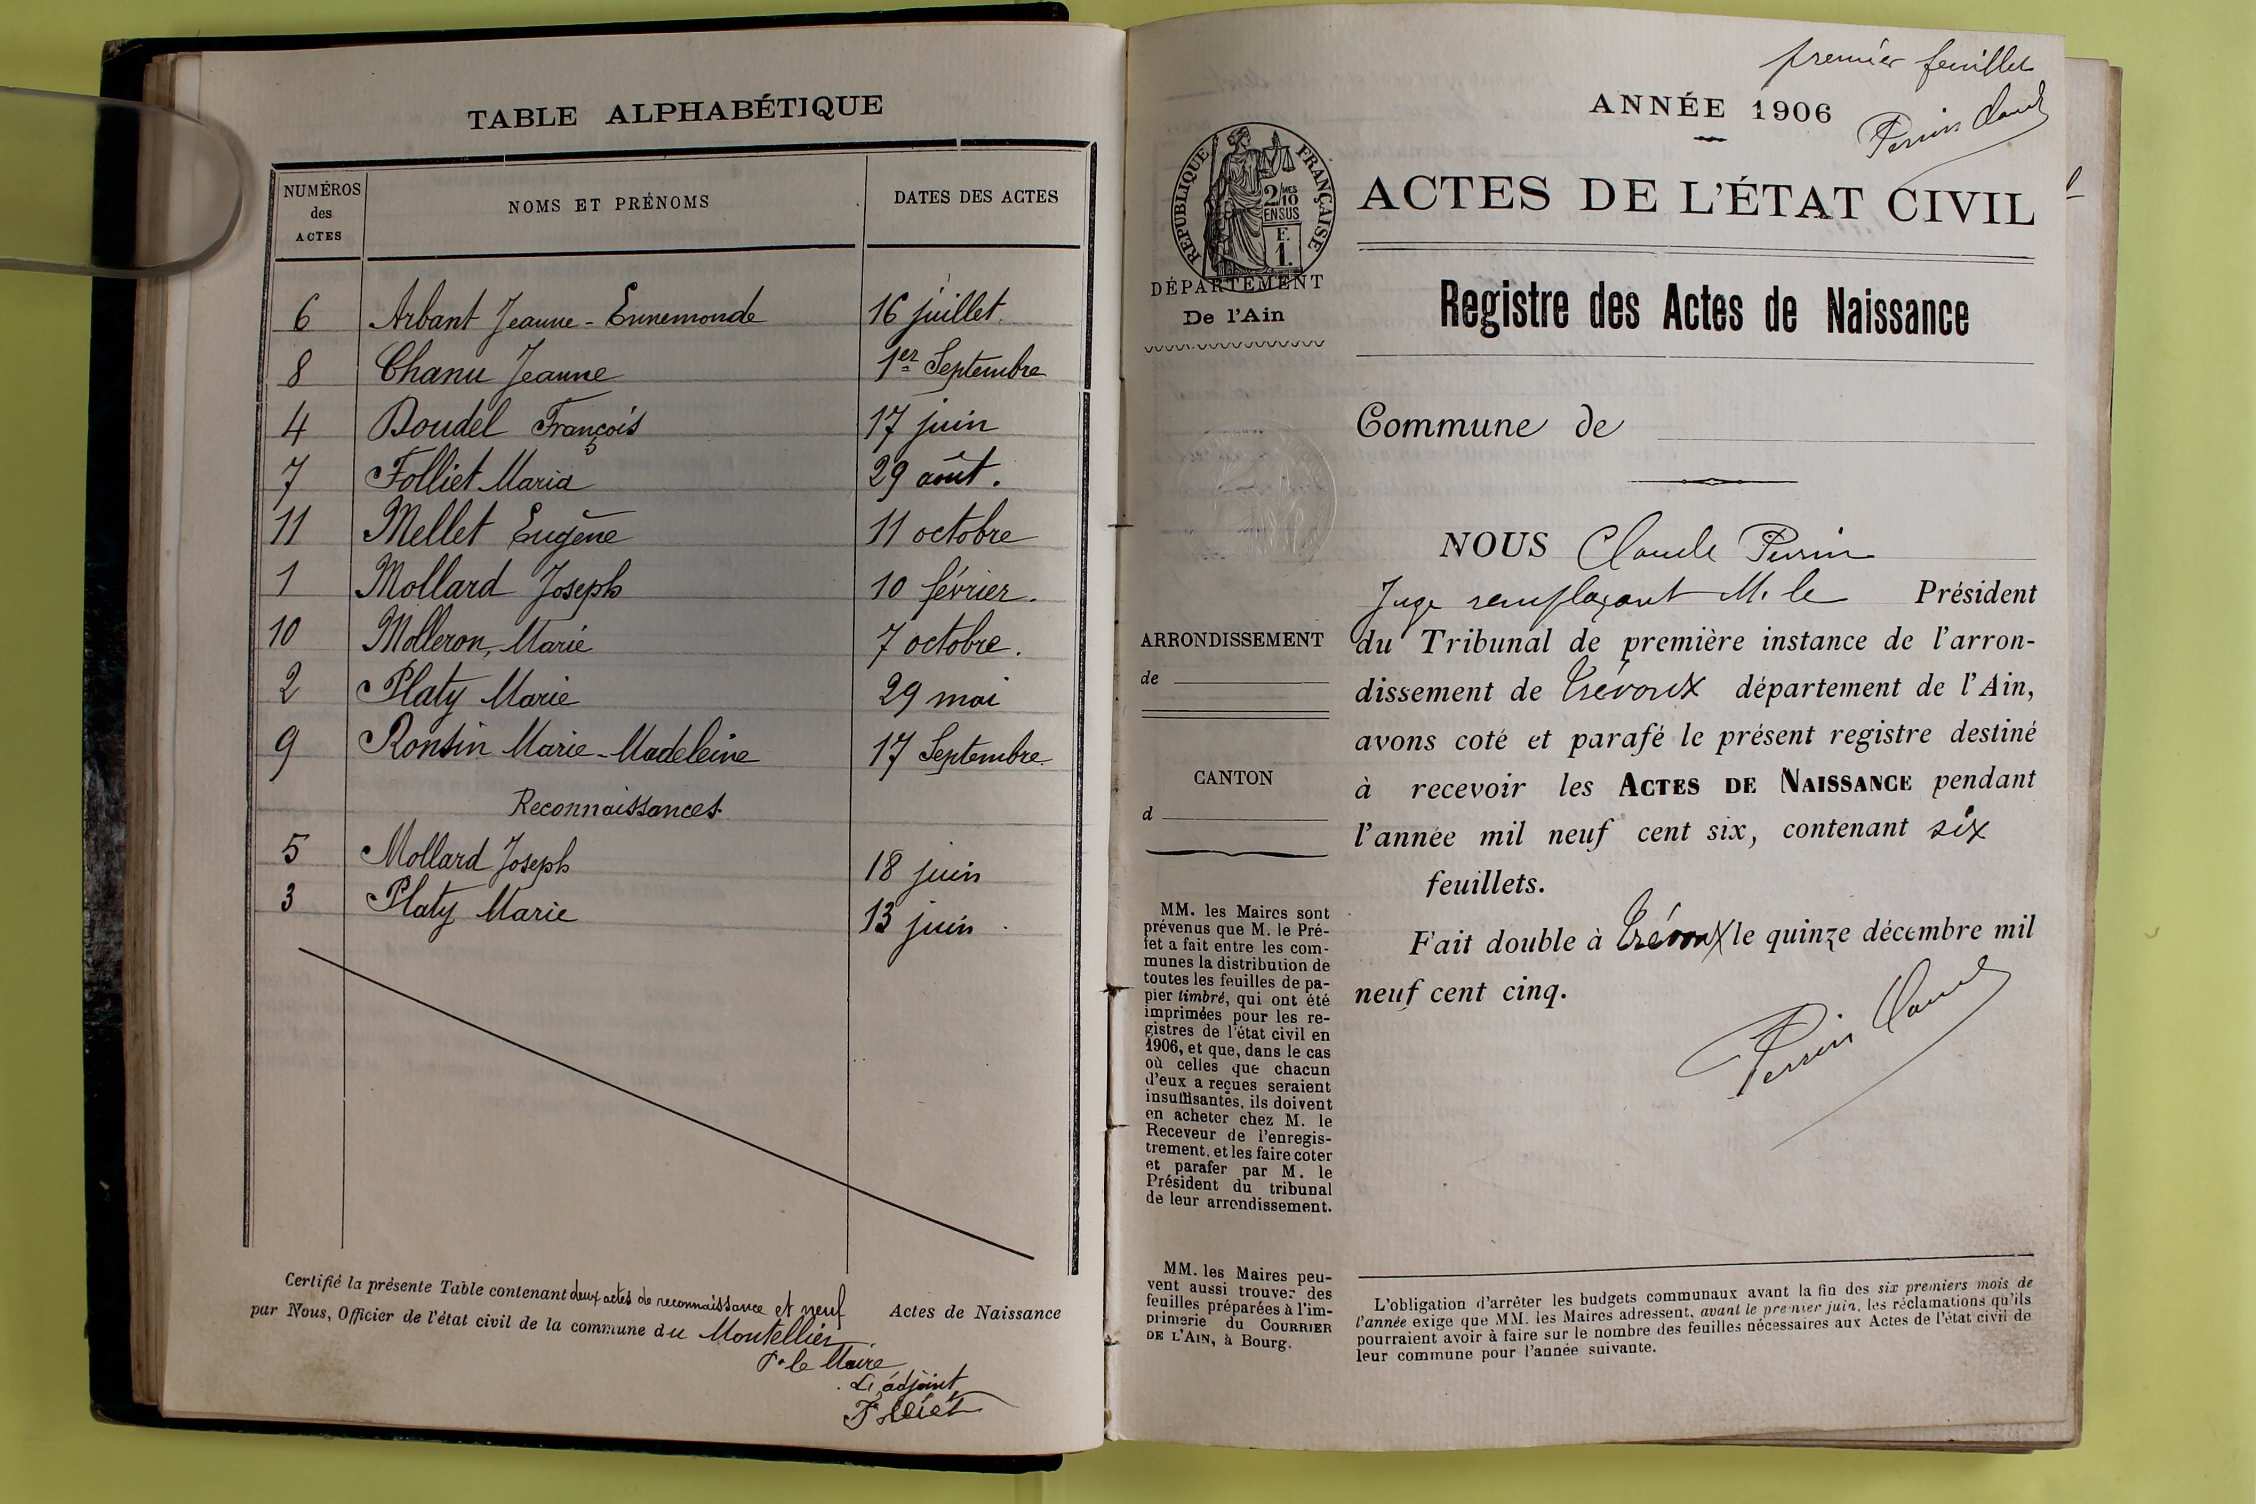 TABLE ALPHABÉTIQUE
NUMÉROS des ACTES	NOMS ET PRÉNOMS	DATES DES ACTES
6	Arbant Jeanne-Ennemonde	16 juillet.
8	Chanu Jeanne	1er Septembre
4	Doudel François	17 juin
7	Folliet Maria	29 août.
11	Mellet Eugène	11 octobre
1	Mollard Joseph	10 février.
10	Molleron, Marie	7 octobre.
2	Platy Marie	29 mai
9	Ronsin Marie-Madeleine	17 Septembre
Reconnaissances.
5	Mollard Joseph	18 juin
3	Platy Marie	13 juin
Certifié la présente Table contenant deux actes de reconnaissance et neuf Actes de Naissance
par Nous, Officier de l'état civil de la commune du Montellier
Pr le Maire
L'adjoint
Folliet
premier feuillet
Perrin Claude
ANNÉE 1906
RÉPUBLIQUE FRANÇAISE
2/10 MES
EN SUS
F.
1.
DÉPARTEMENT
De l'Ain
ACTES DE L'ÉTAT CIVIL
Registre des Actes de Naissance
Commune de
NOUS Claude Perrin
Juge remplaçant M. le Président
du Tribunal de première instance de l'arron-
dissement de Trévoux département de l'Ain,
avons coté et parafé le présent registre destiné
à recevoir les ACTES DE NAISSANCE pendant
l'année mil neuf cent six, contenant six
feuillets.
Fait double à Trévoux le quinze décembre mil
neuf cent cinq.
Perrin Claude
ARRONDISSEMENT
de
CANTON
d
MM. les Maires sont
prévenus que M. le Pré-
fet a fait entre les com-
munes la distribution de
toutes les feuilles de pa-
pier timbré, qui ont été
imprimées pour les re-
gistres de l'état civil en
1906, et que, dans le cas
où celles que chacun
d'eux a reçues seraient
insuffisantes, ils doivent
en acheter chez M. le
Receveur de l'enregis-
trement, et les faire coter
et parafer par M. le
Président du tribunal
de leur arrondissement.
MM. les Maires peu-
vent aussi trouver des
feuilles préparées à l'im-
primerie du COURRIER
DE L'AIN, à Bourg.
L'obligation d'arrêter les budgets communaux avant la fin des six premiers mois de
l'année exige que MM. les Maires adressent, avant le premier juin, les réclamations qu'ils
pourraient avoir à faire sur le nombre des feuilles nécessaires aux Actes de l'état civil de
leur commune pour l'année suivante.